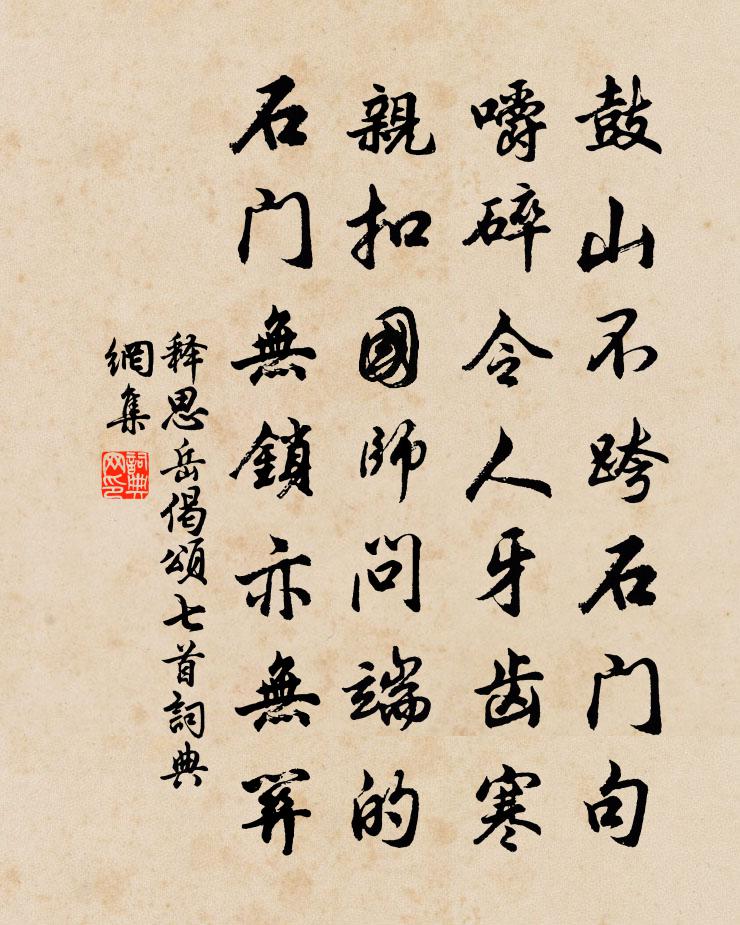 鼓山不跨石门句
嚼碎令人牙齿寒
親扣國師问端的
石门無鎖亦無關
释思岳偈頌七首詞典
網集
詞典
网印